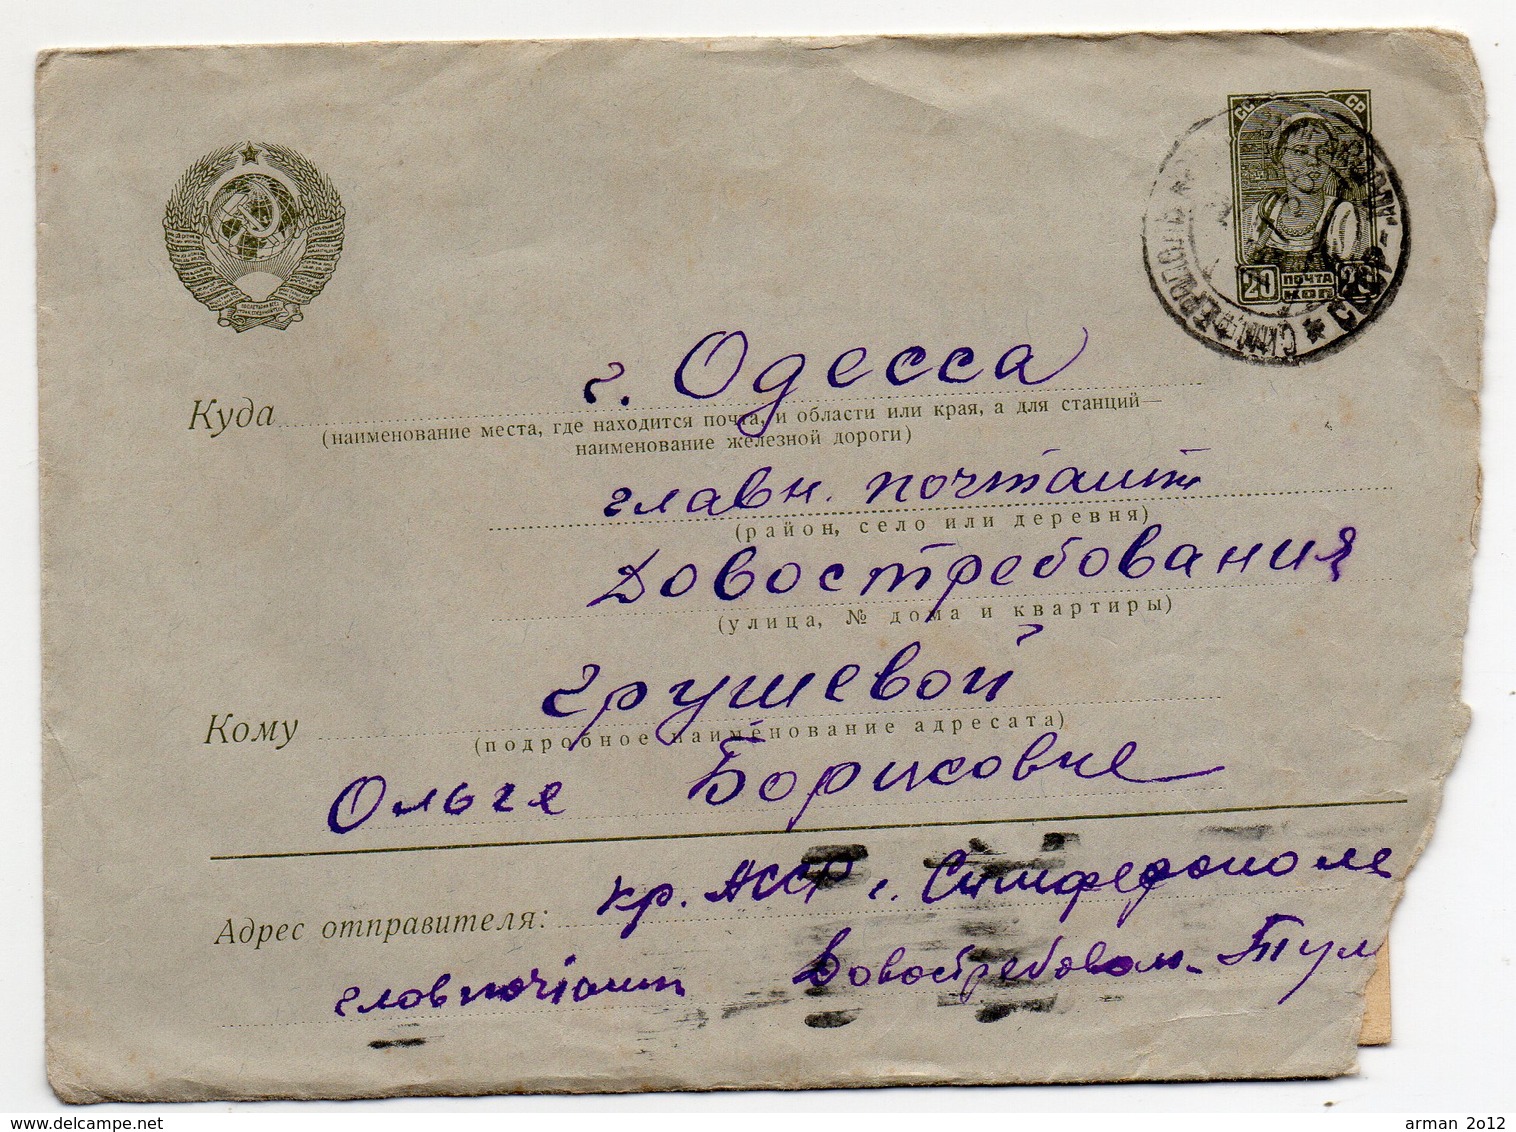 СС СР
20 ПОЧТА 20
КОП
СИМФЕРОПОЛЬ
г. Одесса
Куда
(наименование места, где находится почта, и области или края, а для станций—
наименование железной дороги)
главн. почтамт
(район, село или деревня)
Довостребования
(улица, № дома и квартиры)
Грушевой
Кому
(подробное наименование адресата)
Ольге Борисовне
кр. АССР г. Симферополе
Адрес отправителя:
главпочтамт Довостребован. Тум
delcampe.net
arman 2012